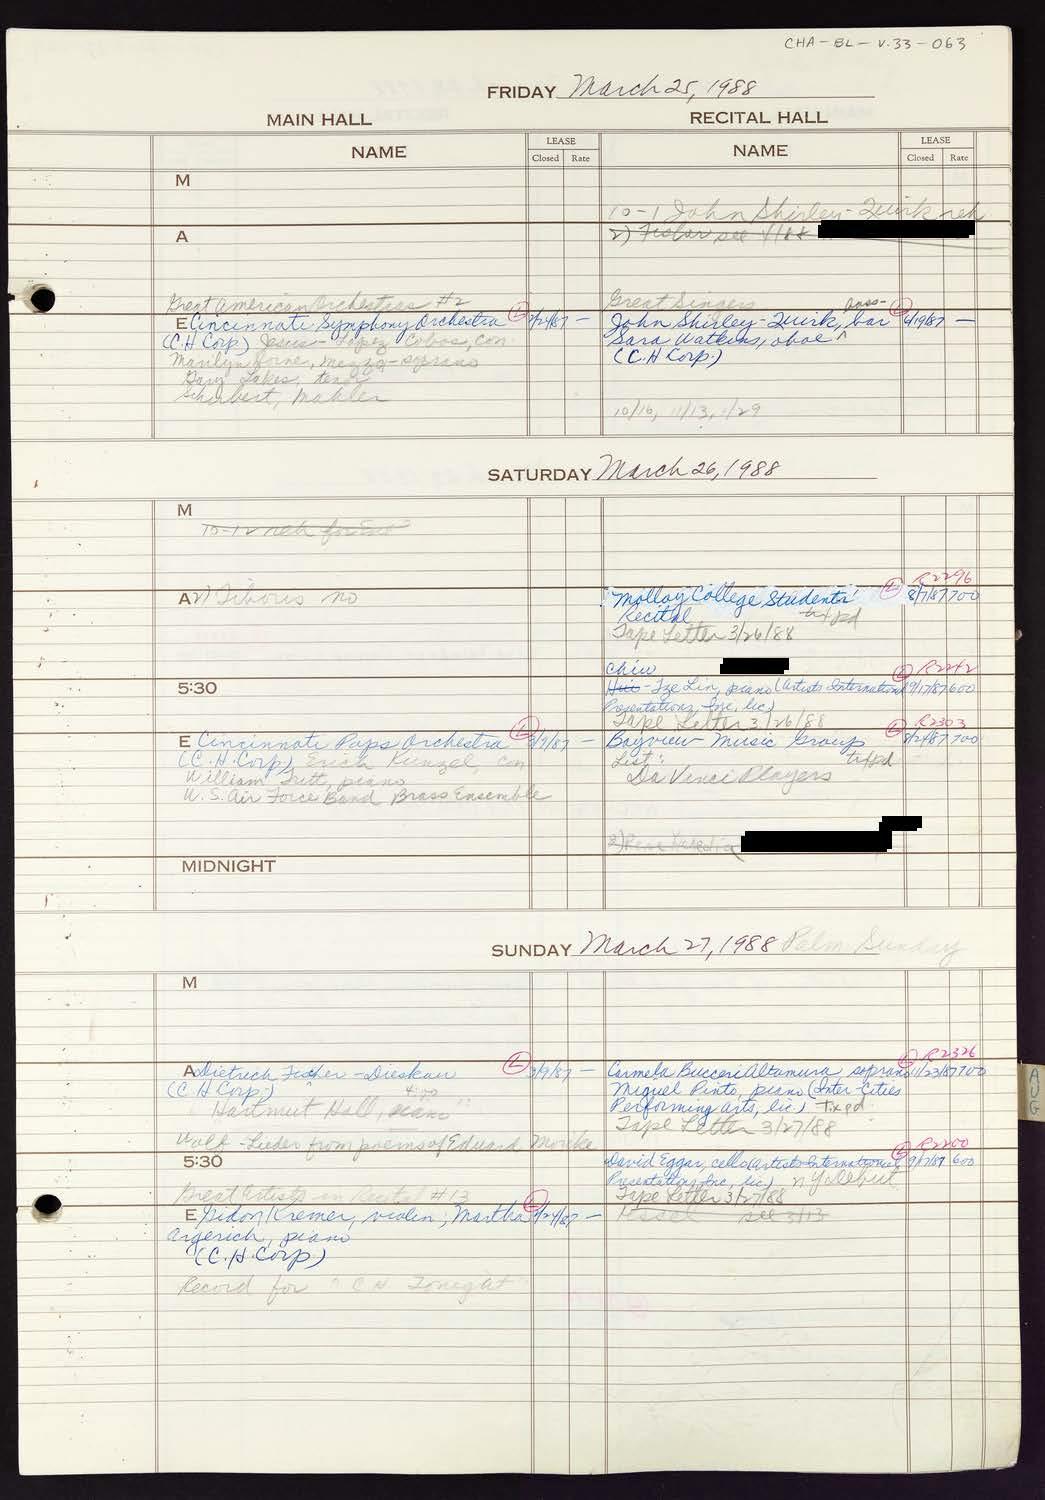 CHA-BL-V.33-063
FRIDAY March 25, 1988
MAIN HALL
RECITAL HALL
NAME
LEASE
Closed Rate
NAME
LEASE
Closed Rate
M
10-1 John Shirley-Quirk reh
A
2) Fisher see 4/88
Great American Orchestras #2
E Cincinnati Symphony Orchestra L 9/24/87 —
(C.H. Corp) Jesus Lopez-Cobos, con.
Marilyn Horne, mezzo-soprano
Gary Lakes, tenor
Schubert, Mahler
Great Singers
bass- L
John Shirley-Quirk, bar 4/19/87 —
Sara Watkins, oboe ^
(C.H. Corp.)
10/16, 11/13, 1/29
SATURDAY March 26, 1988
M
10-12 reh for Eve
A 2) Tiboris no
L R2296
"Molloy College Students' 8/7/87 700
Recital tx pd
Tape Letter 3/26/88
5:30
Chiu L R2242
Hui-Tze Lin, piano (Artists International 9/17/87 600
Presentations, Inc, lic)
Tape Letter 3/26/88
E Cincinnati Pops Orchestra L 9/87 —
(C.H. Corp) Erich Kunzel, con
William Tritt, piano
U.S. Air Force Band Brass Ensemble
L R2303
Bayview Music Group 87 700
List: tx pd
Da Vinci Players
2) Rene
MIDNIGHT
SUNDAY March 27, 1988 Palm Sunday
M
A Dietrich Fischer-Dieskau L /9/87 —
(C.H. Corp.) 4:00
Hartmut Höll, piano
Wolf-Lieder from poems of Eduard Morike
L R2326
Carmela Bucceri Altamura soprano 11/23/87 700
Miguel Pinto, piano (Inter-Cities
Performing Arts, lic.) Tx pd
Tape Letter 3/27/88
AUG
5:30
L R2200
David Eggar, cello (Artists International 9/17/87 600
Presentations, Inc, lic) NY debut
Tape Letter 3/27/88
see 3/13
Great Artists in Recital #13
E Gidon Kremer, violin; Martha L 9/24/87 —
Argerich, piano
(C.H. Corp)
Record for "C H Tonight"